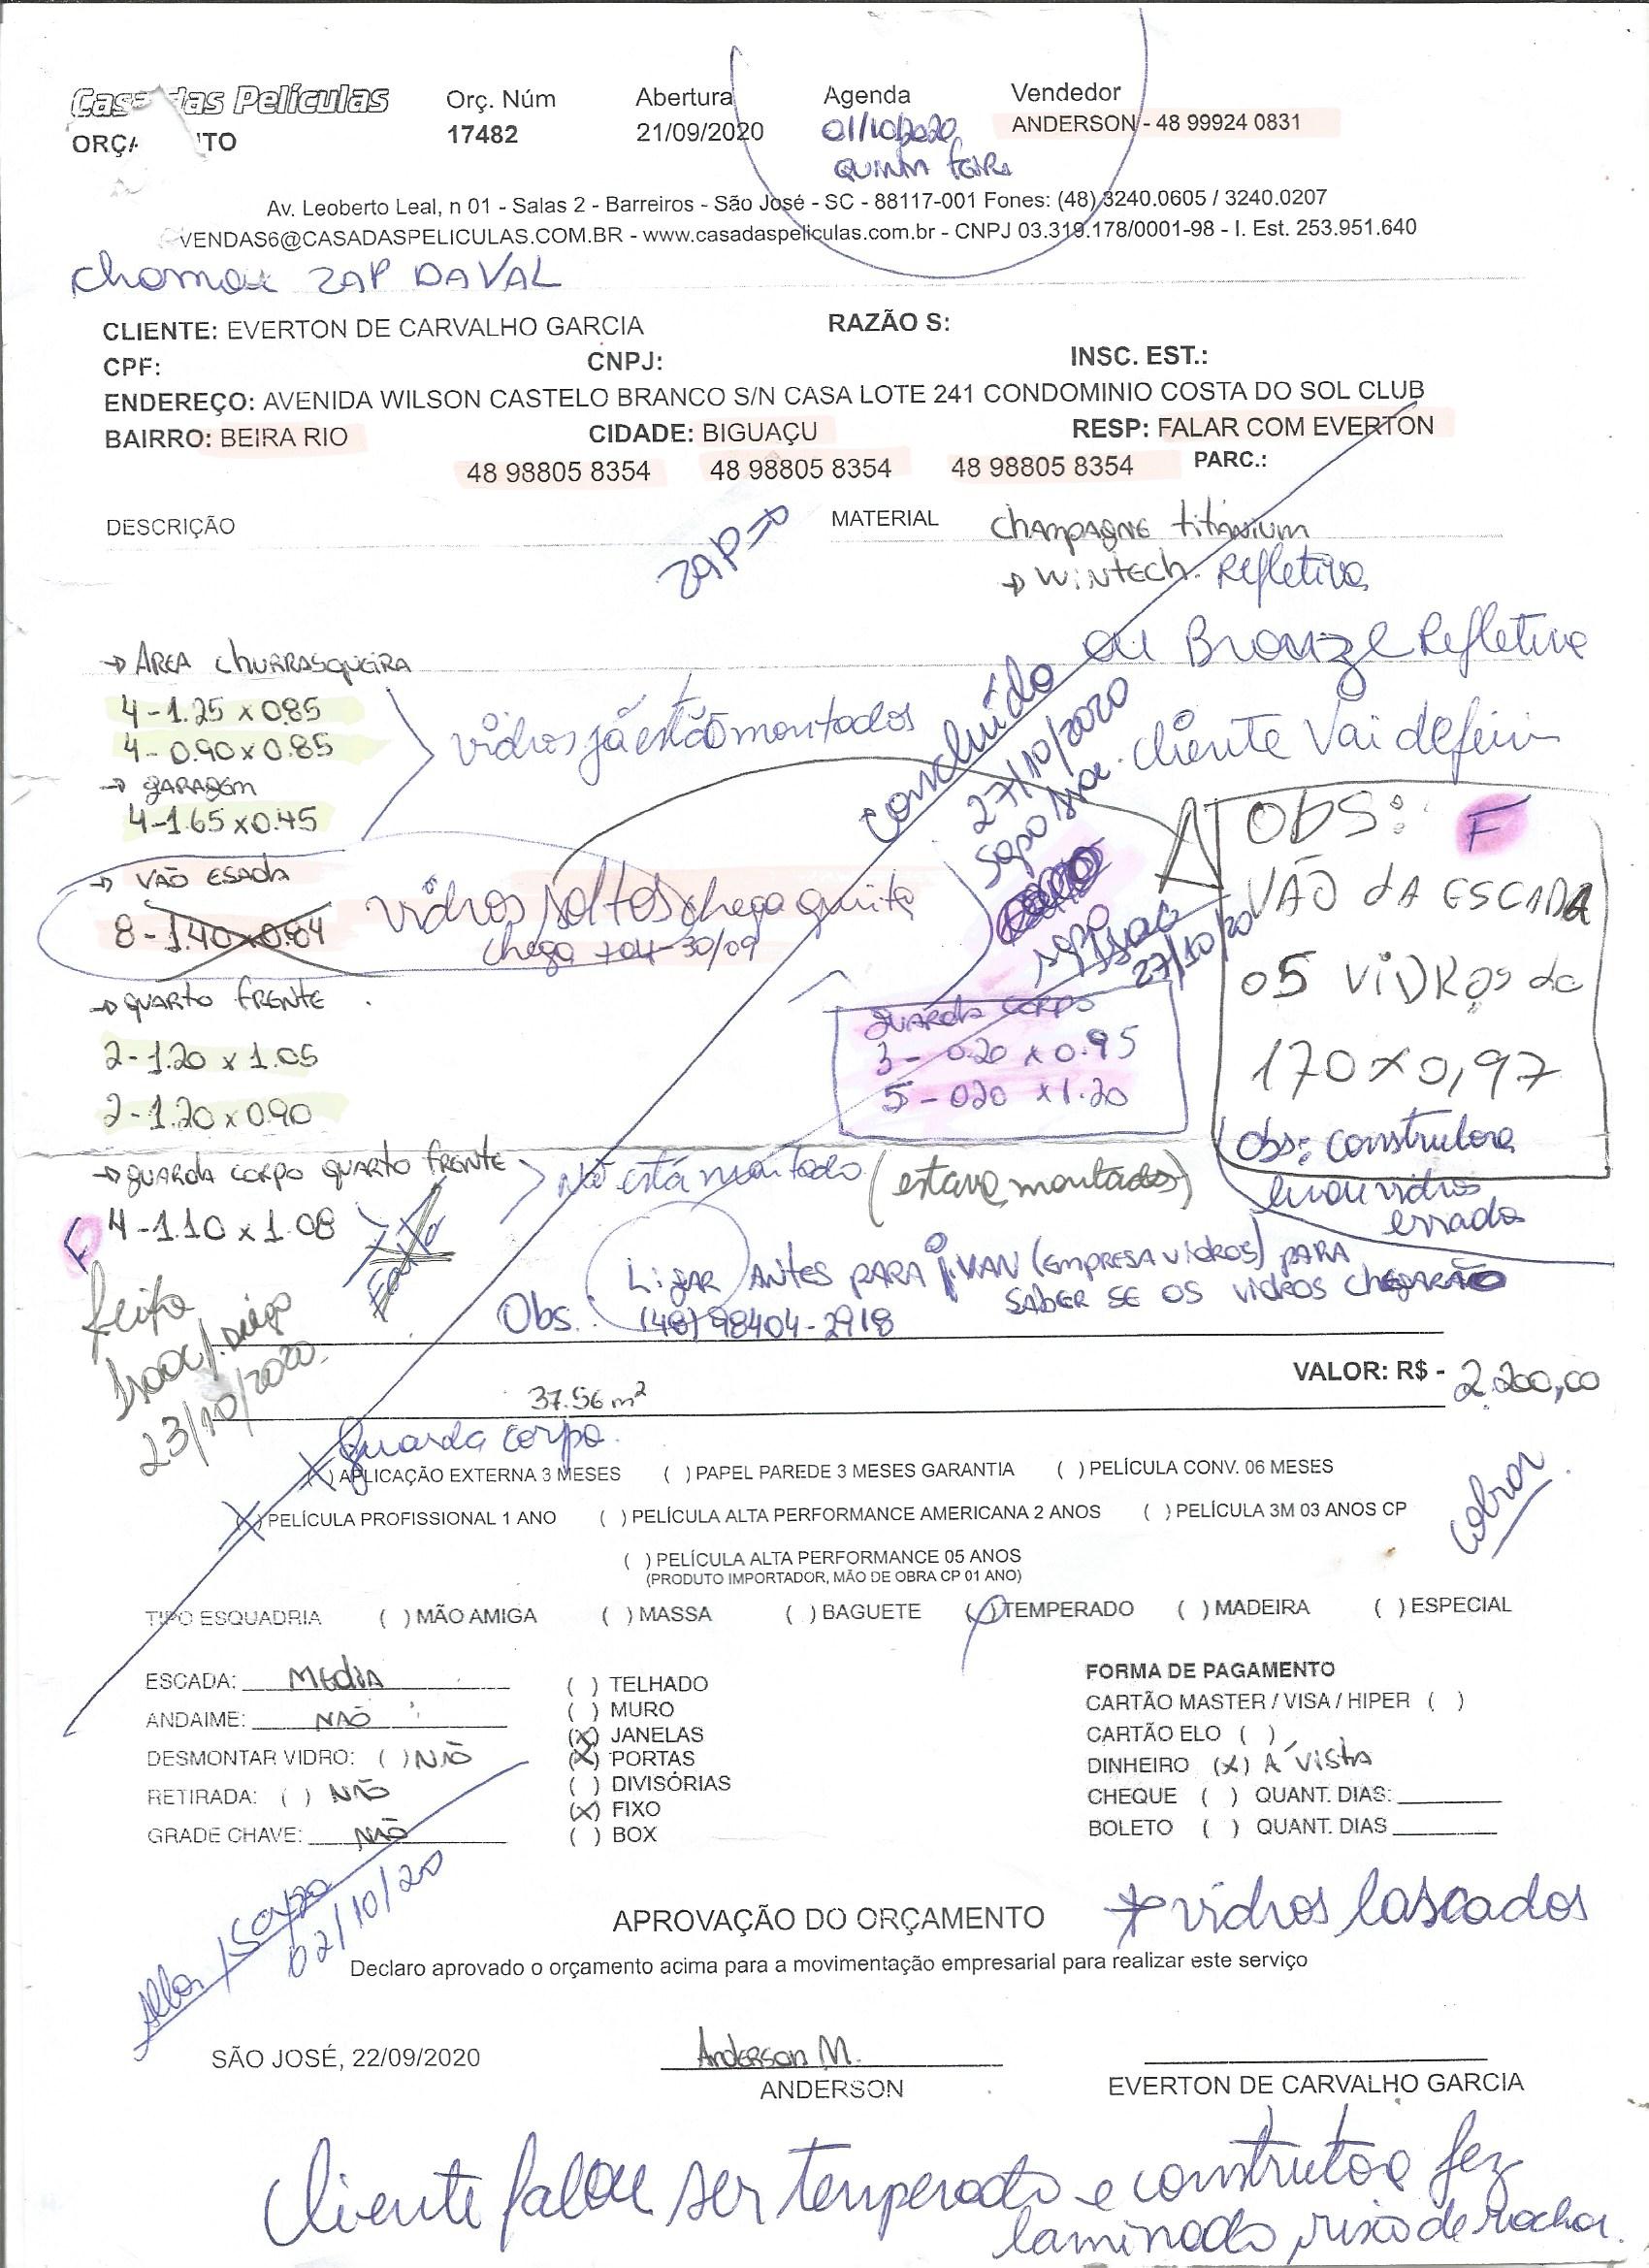 Casa das Películas
Orç. Núm
Abertura
Agenda
Vendedor
17482
21/09/2020
01/10/2020
QUINTA FEIRA
ANDERSON - 48 99924 0831
Av. Leoberto Leal, n 01 - Salas 2 - Barreiros - São José - SC - 88117-001 Fones: (48) 3240.0605 / 3240.0207
VENDAS6@CASADASPELICULAS.COM.BR - www.casadaspeliculas.com.br - CNPJ 03.319.178/0001-98 - I. Est. 253.951.640
ZAP DA VAL
CLIENTE: EVERTON DE CARVALHO GARCIA RAZÃO S:
CPF: CNPJ: INSC. EST.:
ENDEREÇO: AVENIDA WILSON CASTELO BRANCO S/N CASA LOTE 241 CONDOMINIO COSTA DO SOL CLUB
BAIRRO: BEIRA RIO CIDADE: BIGUAÇU RESP: FALAR COM EVERTON
48 98805 8354 48 98805 8354 48 98805 8354 PARC.:
DESCRIÇÃO
ZAP →
MATERIAL champagne titânium
→ WINTECH. Refletiva
ou Bronze Refletiva
cliente vai definir
→ ÁREA churrasqueira
4 - 1.25 x 0.85
4 - 0.90 x 0.85
vidros já estão montados
→ garagem
4 - 1.65 x 0.45
→ VÃO ESADA
8 - 1.40 x 0.84
vidros soltos chega quinta
30/09
→ quarto frente
2 - 1.20 x 1.05
2 - 1.20 x 0.90
→ guarda corpo quarto frente
4 - 1.10 x 1.08
Não está montado
(estava montados)
concluído
27/10/2020
27/10/20
guarda corpo
3 - 0.20 x 0.95
5 - 020 x 1.20
Obs: F
VÃO da ESCADA
05 VIDROS de
170 x 0,97
Obs: construtora
vidros
errado
F
feito
23/10/2020
Obs.: Ligar ANTES PARA IVAN (EMPRESA VIDROS) PARA
SABER SE OS VIDROS CHEGARÃO
(48) 98404-2918
VALOR: R$ - 2.200,00
37.56 m²
guarda corpo
(X) APLICAÇÃO EXTERNA 3 MESES ( ) PAPEL PAREDE 3 MESES GARANTIA ( ) PELÍCULA CONV. 06 MESES
(X) PELÍCULA PROFISSIONAL 1 ANO ( ) PELÍCULA ALTA PERFORMANCE AMERICANA 2 ANOS ( ) PELÍCULA 3M 03 ANOS CP
cobrar
( ) PELÍCULA ALTA PERFORMANCE 05 ANOS
(PRODUTO IMPORTADOR, MÃO DE OBRA CP 01 ANO)
TIPO ESQUADRIA ( ) MÃO AMIGA ( ) MASSA ( ) BAGUETE ( ) TEMPERADO ( ) MADEIRA ( ) ESPECIAL
ESCADA: MEDIA
ANDAIME: NÃO
DESMONTAR VIDRO: ( ) NÃO
RETIRADA: ( ) NÃO
GRADE CHAVE: NÃO
( ) TELHADO
( ) MURO
(X) JANELAS
(X) PORTAS
( ) DIVISÓRIAS
(X) FIXO
( ) BOX
FORMA DE PAGAMENTO
CARTÃO MASTER / VISA / HIPER ( )
CARTÃO ELO ( )
DINHEIRO (X) À VISTA
CHEQUE ( ) QUANT. DIAS:
BOLETO ( ) QUANT. DIAS
02/10/20
* vidros lascados
APROVAÇÃO DO ORÇAMENTO
Declaro aprovado o orçamento acima para a movimentação empresarial para realizar este serviço
SÃO JOSÉ, 22/09/2020
Anderson M.
ANDERSON
EVERTON DE CARVALHO GARCIA
Cliente falou ser temperado e construtora fez
laminado risco de rachar.